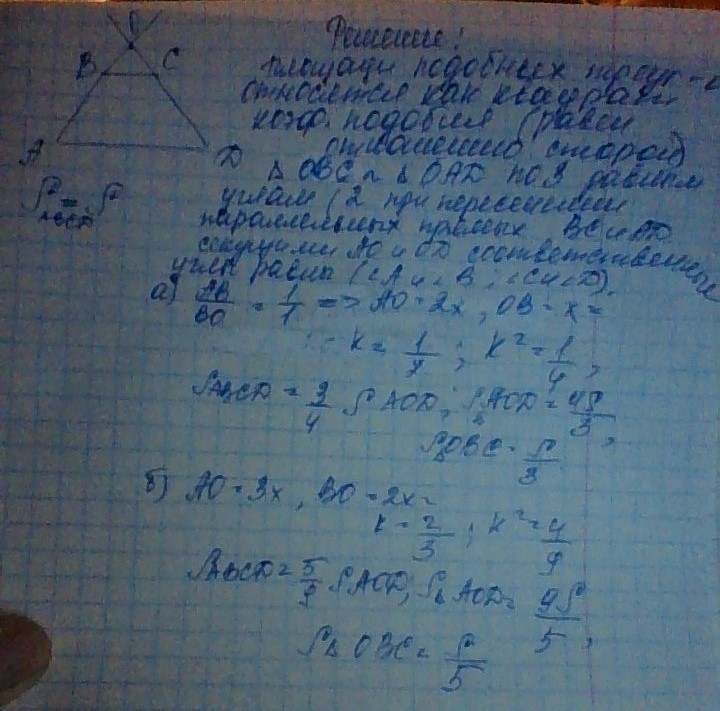 O
B C
A D
S ABCD = S
Решение:
площади подобных треуг-в
относятся как квадраты
коэф. подобия (равен
отношению сторон)
△ OBC ~ △ OAD по 3 равным
углам (2 при пересечении
параллельных прямых BC и AD
секущими AO и OD соответственные
углы равны (∠A и ∠B; ∠C и ∠D).
а) AB/BO = 1/1 => AO = 2x, OB = x =
K = 1/2; K² = 1/4,
SABCD = 3/4 SAOD, S△AOD = 4S/3,
S△OBC = S/3
б) AO = 3x, BO = 2x =
K = 2/3; K² = 4/9
SABCD = 5/9 SAOD, S△AOD = 9S/5,
S△OBC = S/5